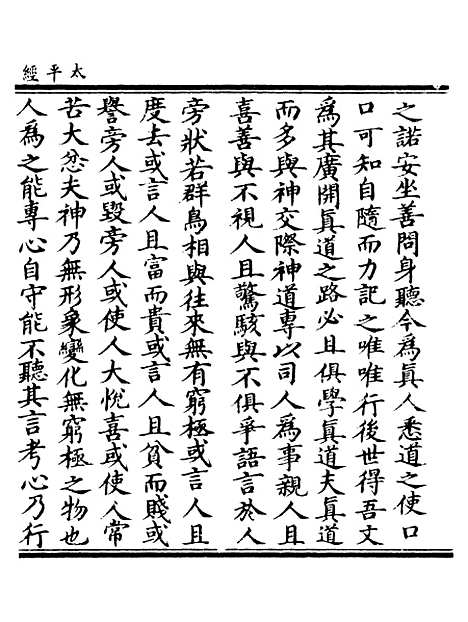 太平經
之諾安坐善問身聽今為真人悉道之使口
口可知自隨而力記之唯唯行後世得吾文
為其廣開真道之路必且俱學真道夫真道
而多與神交際神道專以司人為事親人且
喜善與不視人且驚駭與不俱爭語言於人
旁狀若群鳥相與往來無有窮極或言人且
度去或言人且富而貴或言人且貧而賤或
譽旁人或毀旁人或使人大悅喜或使人常
苦大忿夫神乃無形象變化無窮極之物也
人為之能專心自守能不聽其言考心乃行